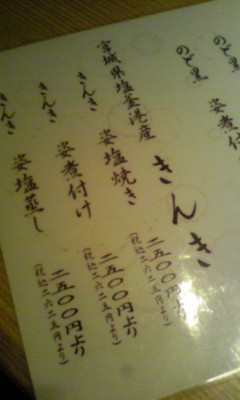 のど黒 姿煮付
のど黒
きんき
宮城県塩釜港産
きんき 姿塩焼き 二五〇〇円より
(税込二六二五円より)
きんき 姿煮付け 二五〇〇円より
(税込二六二五円より)
きんき 姿塩蒸し 二五〇〇円より
(税込二六二五円より)